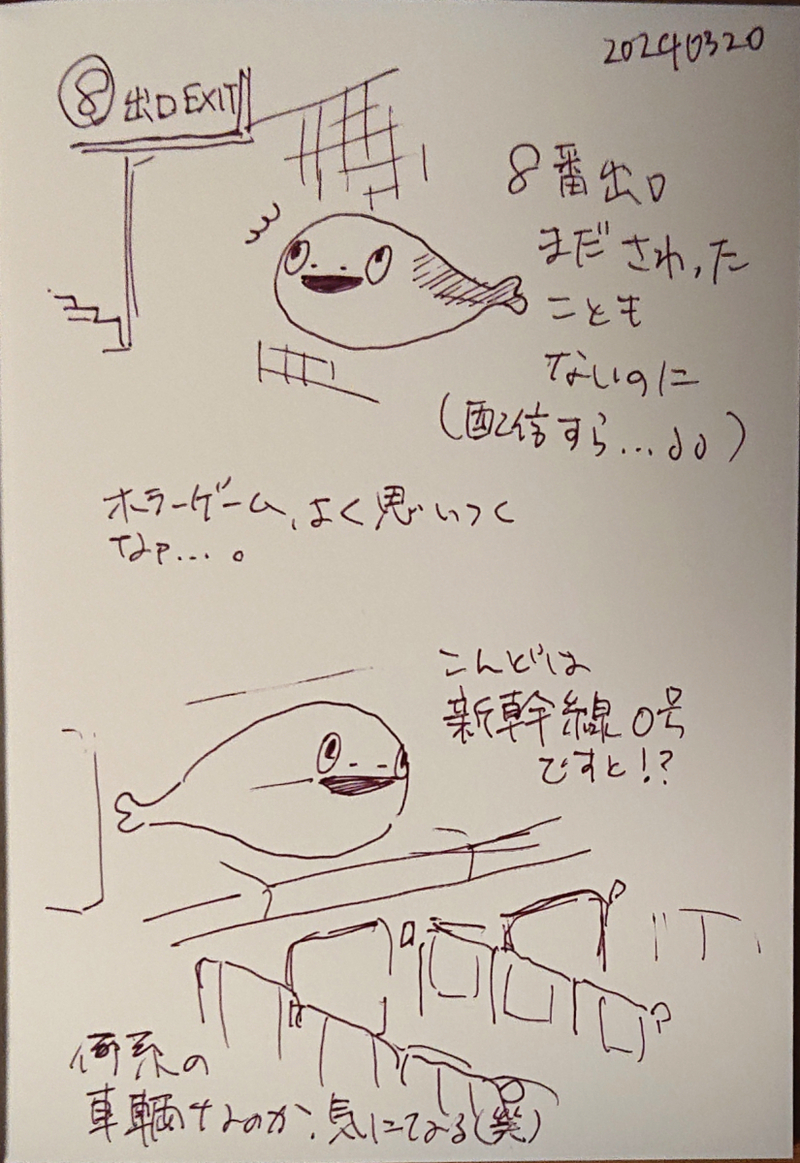 20240320
⑧ 出口 EXIT
8番出口
まださわった
ことも
ないのに
(配信すら…)
ホラーゲーム、よく思いつく
なァ…。
こんどは
新幹線0号
ですと!?
何系の
車輌なのか、気になる(笑)